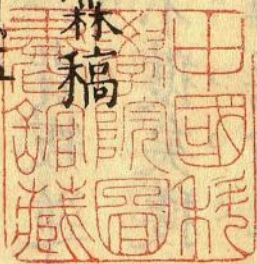 稿
中國科
學院圖
書館藏